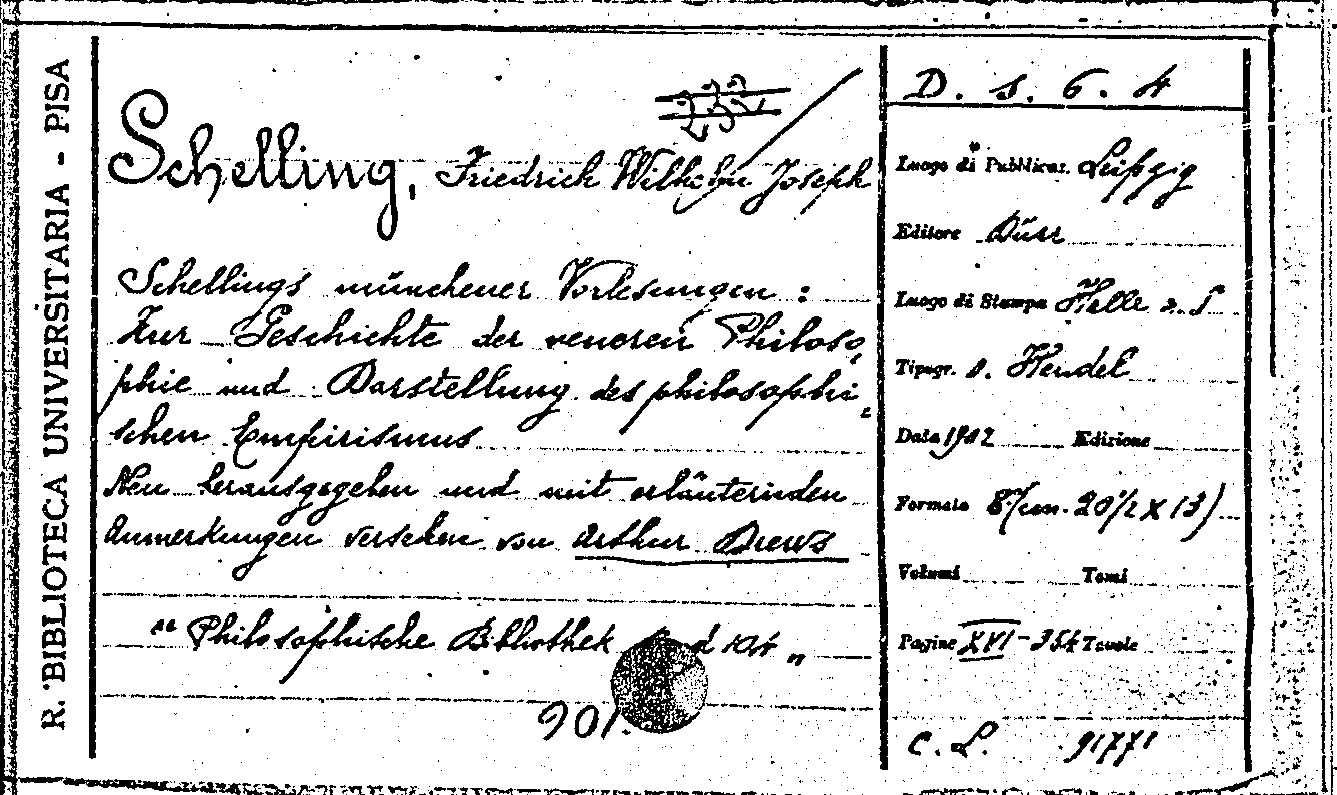 R. BIBLIOTECA UNIVERSITARIA - PISA
233
Schelling, Friedrich Wilhelm Joseph
Schellings münchener Vorlesungen :
Zur Geschichte der neueren Philoso-
phie und Darstellung des philosophi-
schen Empirismus
Neu herausgegeben und mit erläuternden
Anmerkungen versehen von Arthur Drews
"Philosophische Bibliothek d 104"
901.
D. s. 6. 4
Luogo di Pubblicaz. Leipzig
Editore Dürr
Luogo di Stampa Halle a. S
Tipogr. O. Hendel
Data 1902 Edizione
Formato 8° (cm. 20 1/2 x 13)
Volumi Tomi
Pagine XVI - 354 Tavole
C. L. 91771